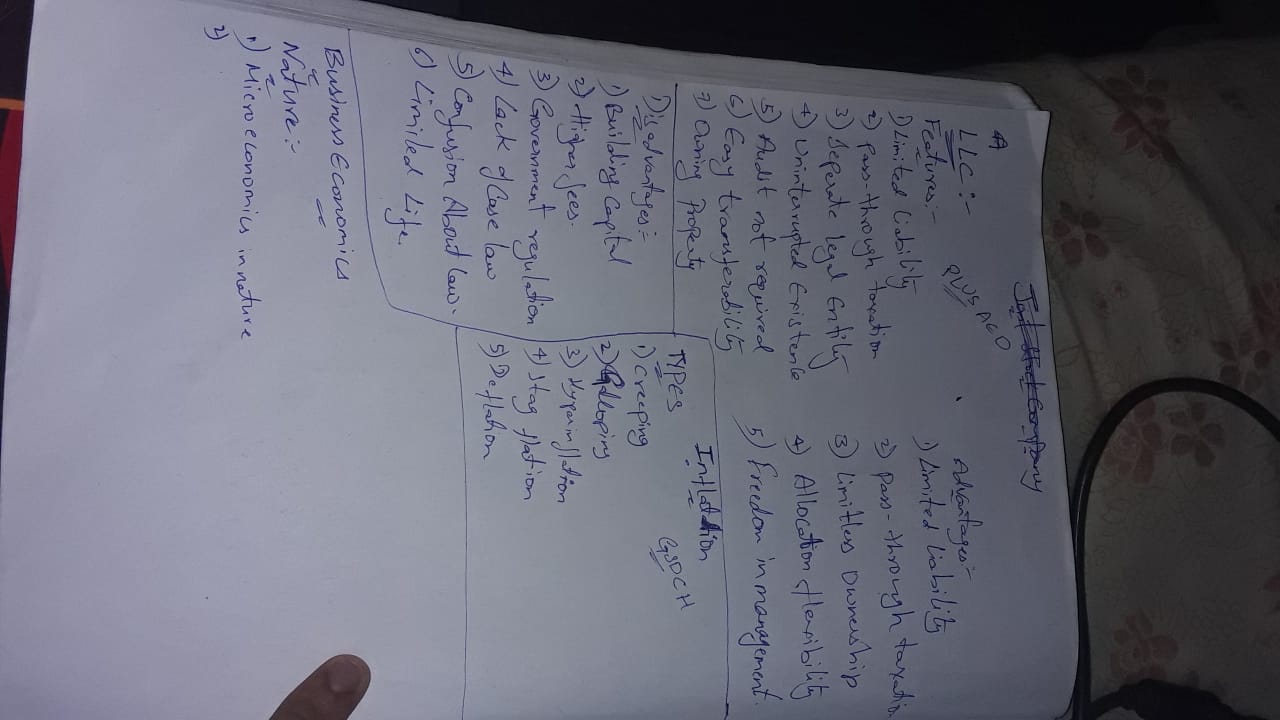 Joint Stock Company
A
LLC:-
PLUSAEO
Features:-
1) Limited liability
2) Pass-through taxation
3) Seperate legal Entity
4) Uninterrupted Existence
5) Audit not required
6) Easy transferability
7) Owning Property
Advantages:-
1) Limited liability
2) Pass-through taxation
3) Limitless Ownership
4) Allocation flexibility
5) Freedom in management.
Disadvantages:-
1) Building Capital
2) Higher fees.
3) Government regulation
4) Lack of Case law
5) Confusion About Law.
6) Limited Life.
Inflation
GSDCH
TYPES
1) Creeping
2) Galloping
3) Hyperinflation
4) Stagflation
5) Deflation
Business Economics
Nature:-
1) Microeconomics in nature
2)